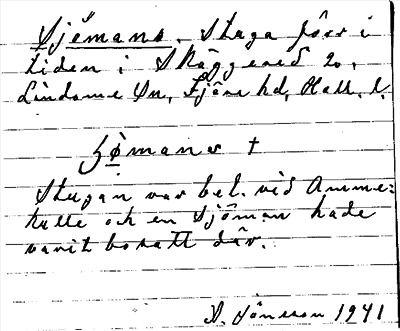 Sjömans, Stuga förr i
tiden i Skäggered 20,
Lindome Sn, Fjäre hd, Hall. l.
Sjömans †
Stugan var bel. vid Amme=
kulle och en Sjöman hade
varit bosatt där.
A. Jönsson 1941